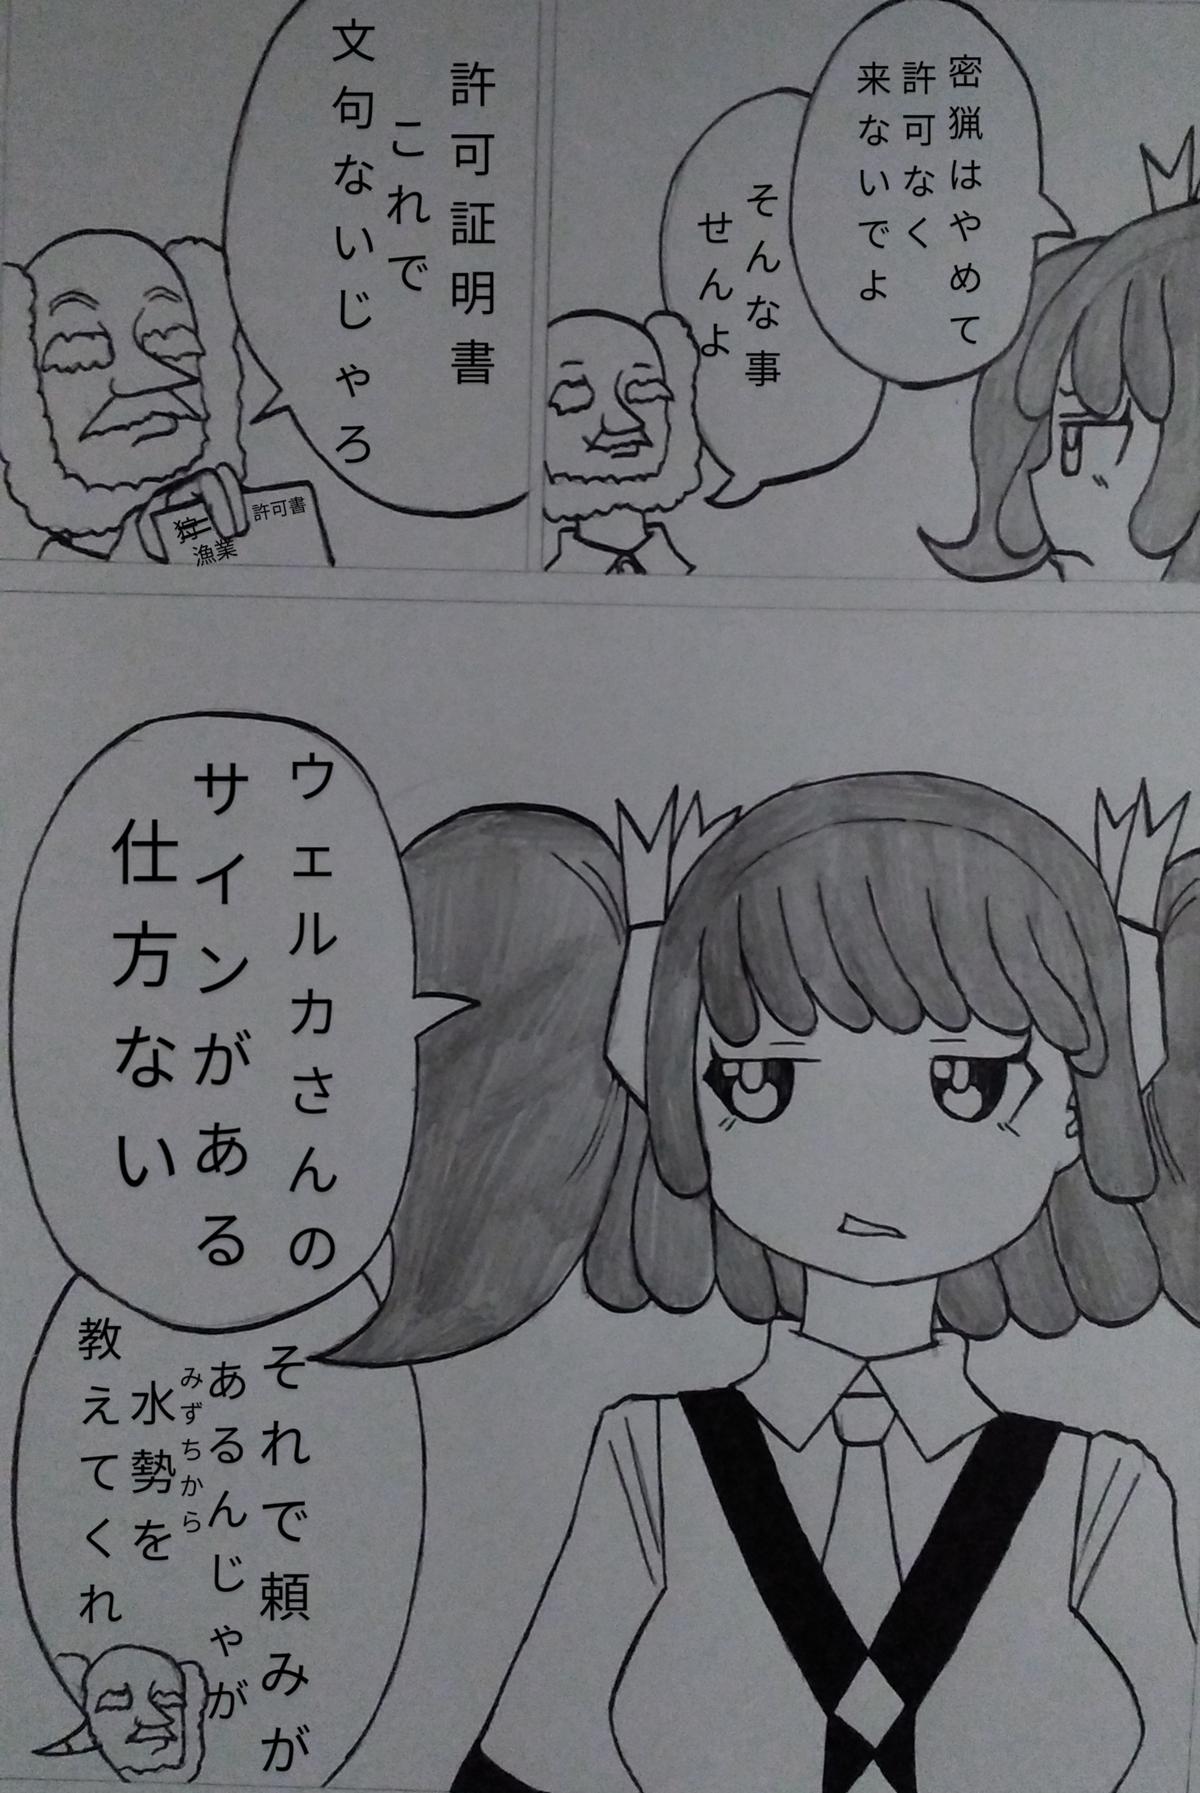 密猟はやめて
許可なく
来ないでよ
そんな事
せんよ
許可証明書
これで
文句ないじゃろ
許可書
狩
漁業
ウェルカさんの
サインがある
仕方ない
それで頼みが
あるんじゃが
水勢を
みずちから
教えてくれ